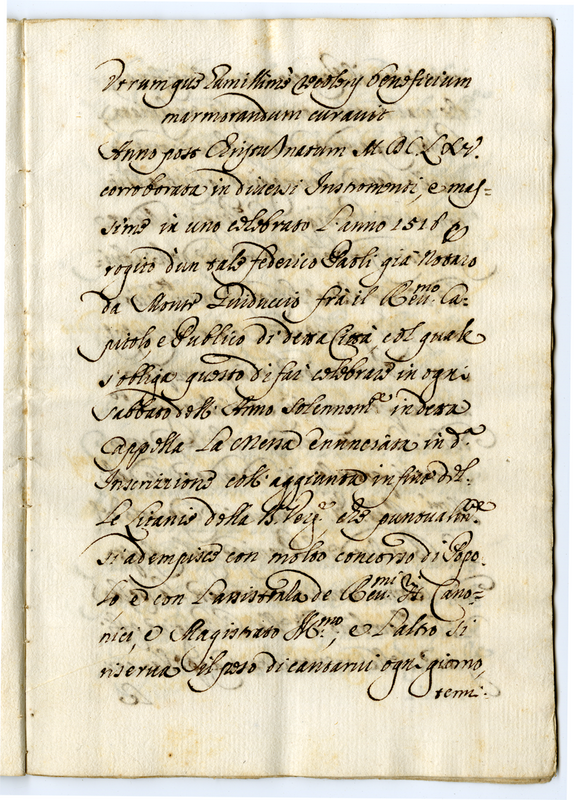 Utrumque humillimè recolens beneficium
marmorandum curavit
Anno post Christum natum M.DC.LXV.
corroborata in diversi Instromenti, e mas-
sime in uno celebrato l'anno 1518 p
rogito d'un tale Federico Paoli già Notaro
da Monte Guiduccio frà il Reu.mo Ca-
pitolo, e Publico di detta Città col quale
s'obliga questo di far celebrare in ogni
Sabbato dell' Anno solennem.e in detta
Cappella La Messa enunciata in d.a
Inscrizzione coll' aggiunta in fine del-
le Litanie della B. Verg.e che
si adempisce con molto concorso di Popo-
lo, e con l'assistenza de Reu.mi SS. Cano-
nici, e Magistrato Ill.mo, e l'altro si
riserva il peso di cantarvi ogni giorno,
termi-